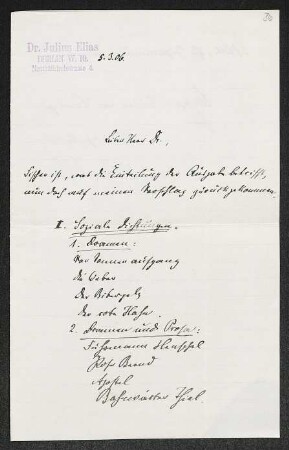 30
Dr. Julius Elias
BERLIN W. 10.
Matthäikirchstrasse 4.
5.3.06.
Lieber Herr Dr.,
Fischer ist, was die Einteilung der Ausgabe betrifft,
nun doch auf meinen Vorschlag zurückgekommen.
I. Soziale Dichtungen.
1. Dramen:
Vor Sonnenaufgang
Die Weber
Der Biberpelz
Der rote Hahn.
2. Dramen und Prosa:
Fuhrmann Henschel
Rose Bernd
Apostel
Bahnwärter Thiel.